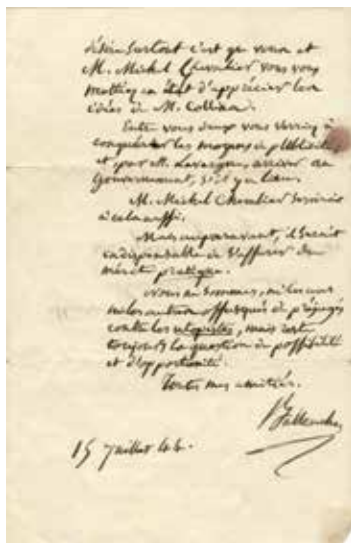 désire surtout c'est que vous et
M. Michel Chevalier vous vous
mettiez en état d'apprécier les
idées de M.
Entre vous deux vous verriez à
les moyens de publicité
et par M. Lavergne, arriver au
Gouvernement, s'il y a lieu.
M. Michel Chevalier
à cela aussi.
Mais auparavant, il serait
indispensable de s'assurer du
mérite pratique.
Nous ne sommes, ni les uns
ni les autres offusqués de préjugés
contre les utopistes, mais reste
toujours la question de possibilité
et d'opportunité.
Toutes mes amitiés.
15 Juillet